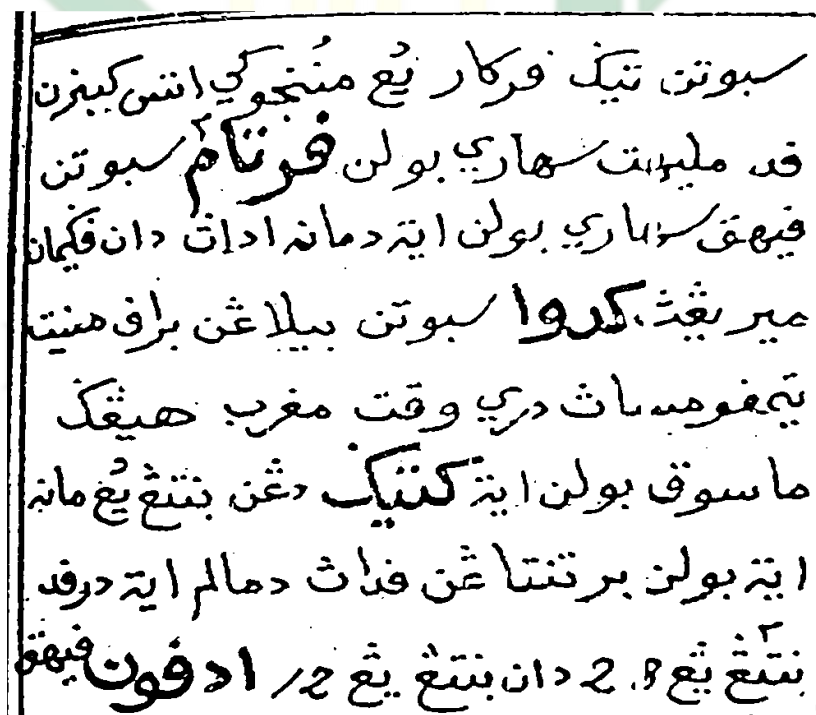 سبوتن تيݢ فركار يڠ مننجوكي اتس كبنرن
فد مليهت سهاري بولن فرتام٢ سبوتن
فيهق سهاري بولن ايت دمانه اداث دان فكيمان
ميريڠث كدوا سبوتن بيلاڠن براف منيت
تيمفوهساث دري وقت مغرب هيڠݢ
ماسوق بولن ايت كتيݢ دڠن بنتڠ يڠ مانه
ايت بولن برتنتاڠن فداث دمالم ايت درفد
بنتڠ٢ يڠ 28 دان بنتڠ يڠ 12 ادفون فيهق